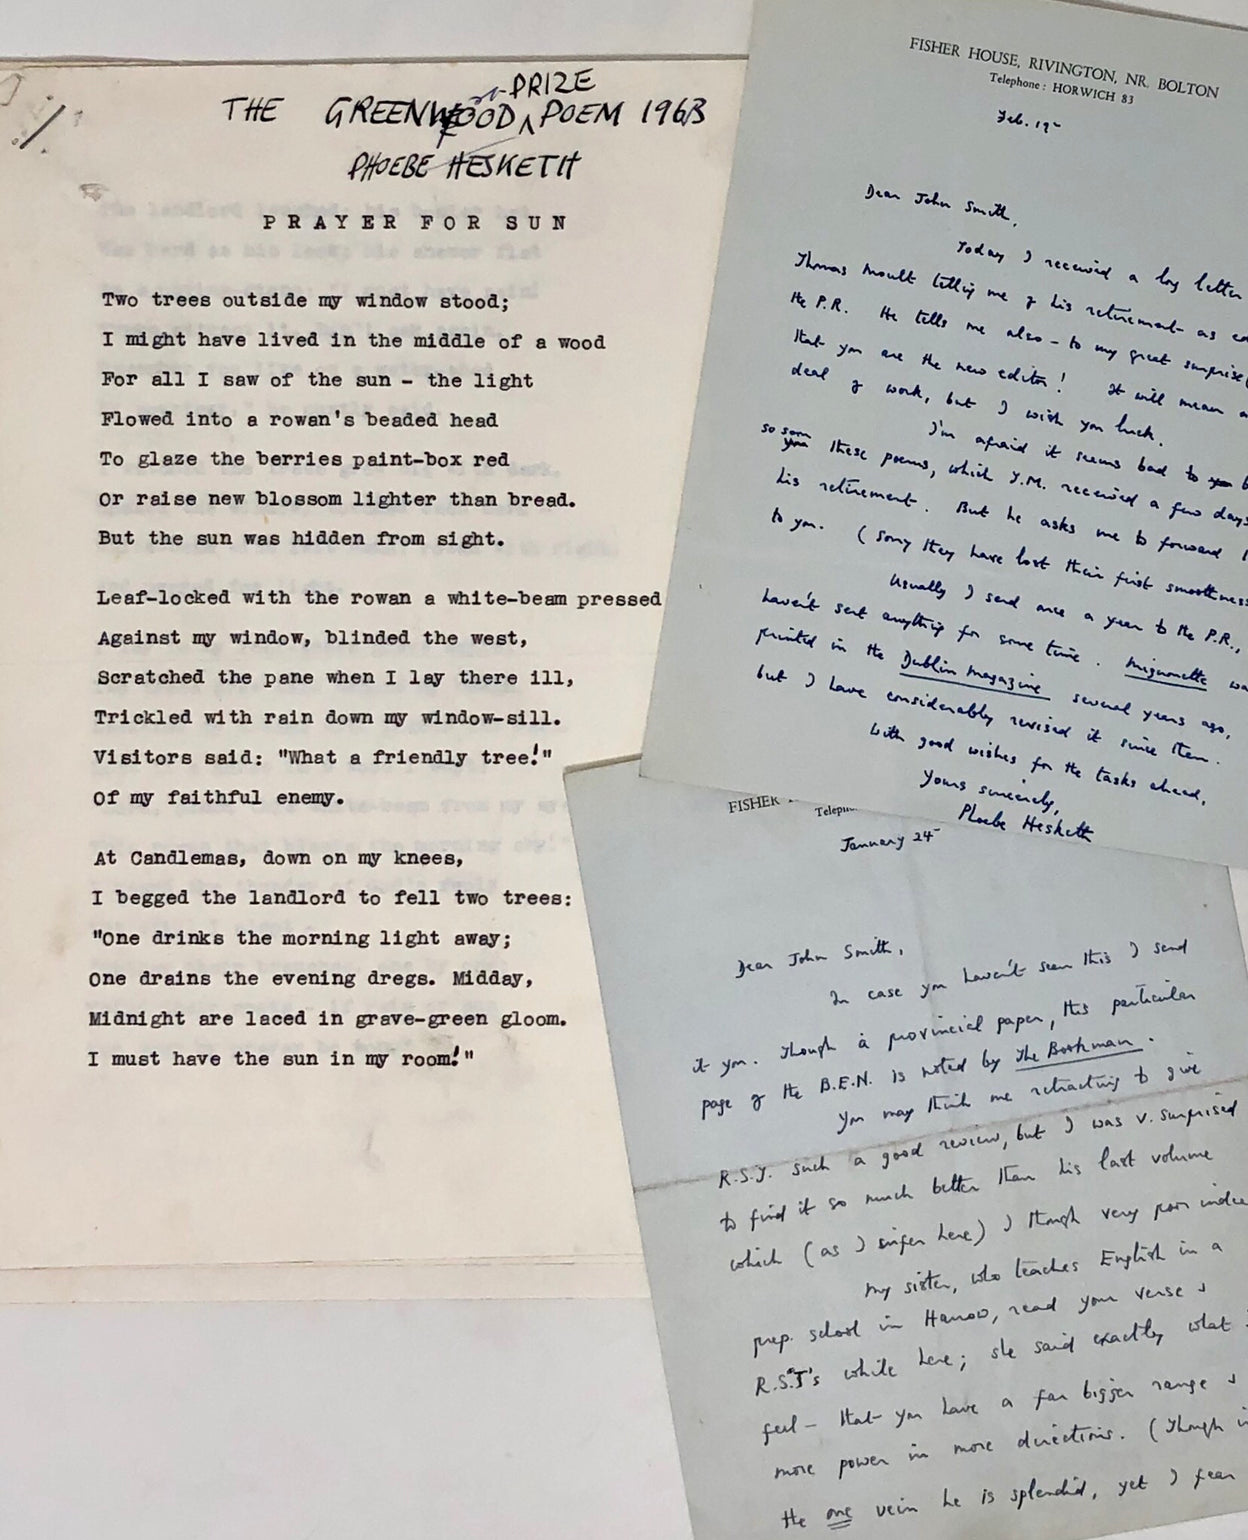 PRIZE
THE GREENWOOD POEM 1963
PHOEBE HESKETH
PRAYER FOR SUN
Two trees outside my window stood;
I might have lived in the middle of a wood
For all I saw of the sun - the light
Flowed into a rowan's beaded head
To glaze the berries paint-box red
Or raise new blossom lighter than bread.
But the sun was hidden from sight.
Leaf-locked with the rowan a white-beam pressed
Against my window, blinded the west,
Scratched the pane when I lay there ill,
Trickled with rain down my window-sill.
Visitors said: "What a friendly tree!"
Of my faithful enemy.
At Candlemas, down on my knees,
I begged the landlord to fell two trees:
"One drinks the morning light away;
One drains the evening dregs. Midday,
Midnight are laced in grave-green gloom.
I must have the sun in my room!"
FISHER HOUSE, RIVINGTON, NR. BOLTON
Telephone: HORWICH 83
Feb. 19
Dear John Smith,
Today I received a long letter
Thomas Moult telling me of his retirement as
the P.R. He tells me also - to my great surprise
that you are the new editor! It will mean a
deal of work, but I wish you luck.
I'm afraid it seems bad to
so soon these poems, which T.M. received a few days
his retirement. But he asks me to forward
to you. (Sorry they have lost their first smoothness
Usually I send once a year to the P.R.,
haven't sent anything for some time. Mignonette
printed in the Dublin Magazine several years ago,
but I have considerably revised it since then.
With good wishes for the tasks ahead,
Yours sincerely,
Phoebe Hesketh
FISHER
January 24
Dear John Smith,
In case you haven't seen this I send
it you. Though a provincial paper, this particular
page of the B.E.N. is noted by The Bookman.
You may think me retracting to give
R.S.T. such a good review, but I was v. surprised
to find it so much better than his last volume
which (as I infer here) I though very poor
My sister, who teaches English in a
prep. school in Harrow, read your verse &
R.S.T's while here; she said exactly what
feel - that you have a far bigger range &
more power in more directions. (Though
the one vein he is splendid, yet I fear